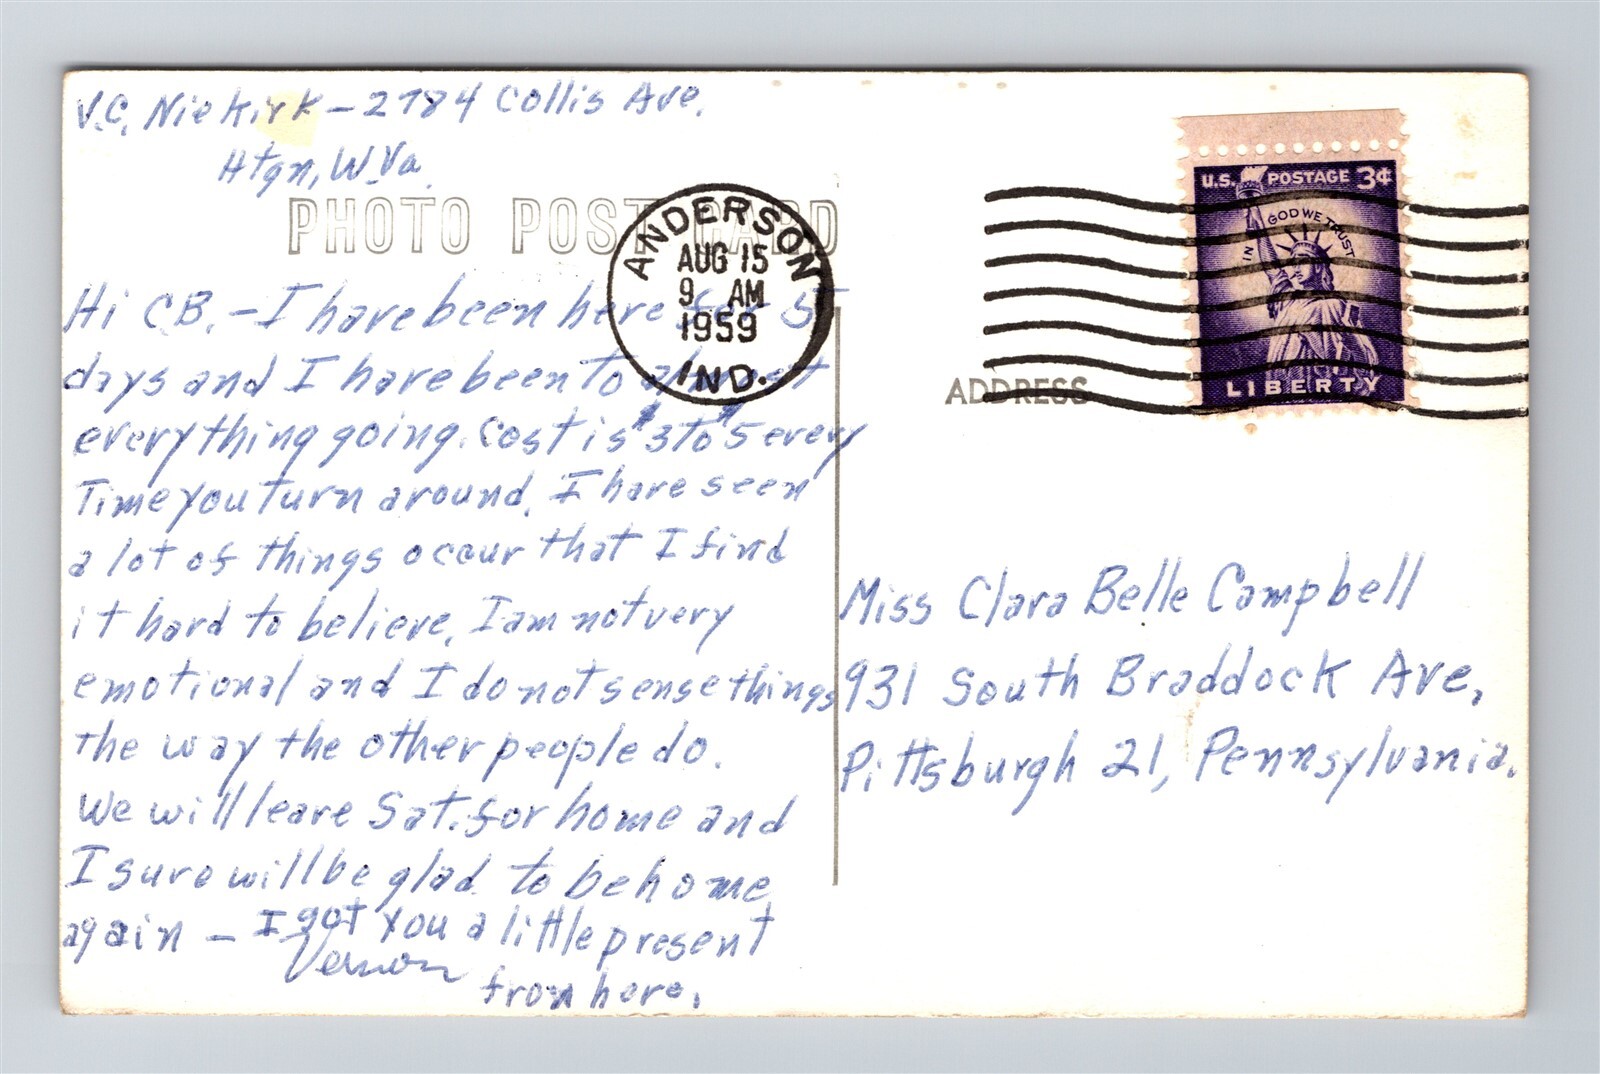 V.C. Niekirk - 2784 Collis Ave.
Htgn, W. Va.
PHOTO POST CARD
ANDERSON
AUG 15
9 AM
1959
IND.
U.S. POSTAGE 3¢
IN GOD WE TRUST
LIBERTY
ADDRESS
Hi CB. - I have been here for 5
days and I have been to almost
everything going. Cost is $3 to $5 every
Time you turn around. I have seen
a lot of things occur that I find
it hard to believe. I am not very
emotional and I do not sense things
the way the other people do.
We will leave Sat. for home and
I sure will be glad to be home
again - I got you a little present
from here.
Vernon
Miss Clara Belle Campbell
931 South Braddock Ave,
Pittsburgh 21, Pennsylvania.